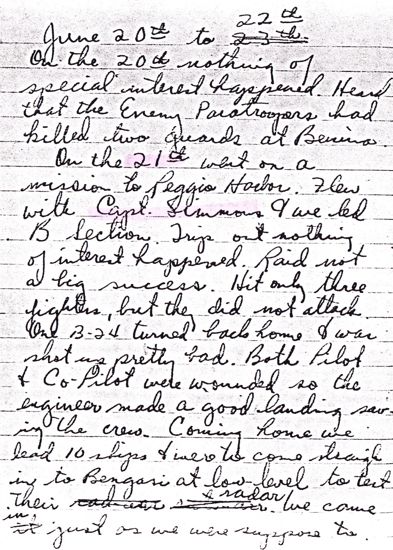 22nd
June 20th to 23th
On the 20th nothing of
special interest happened. Heard
that the Enemy Paratroopers had
killed two guards at Benina.
On the 21st went on a
mission to Reggio Harbor. Flew
with Capt. Simmons & we led
B Section. Trip out nothing
of interest happened. Raid not
a big success. Hit only three
fighters, but they did not attack.
One B-24 turned back home & was
shot up pretty bad. Both Pilot
& Co-Pilot were wounded so the
engineer made a good landing sav-
ing the crew. Coming home we
lead 10 ships & were to come straigh
ing to Bengasi at low-level to test
their radar. We came
in just as we were suppose to.